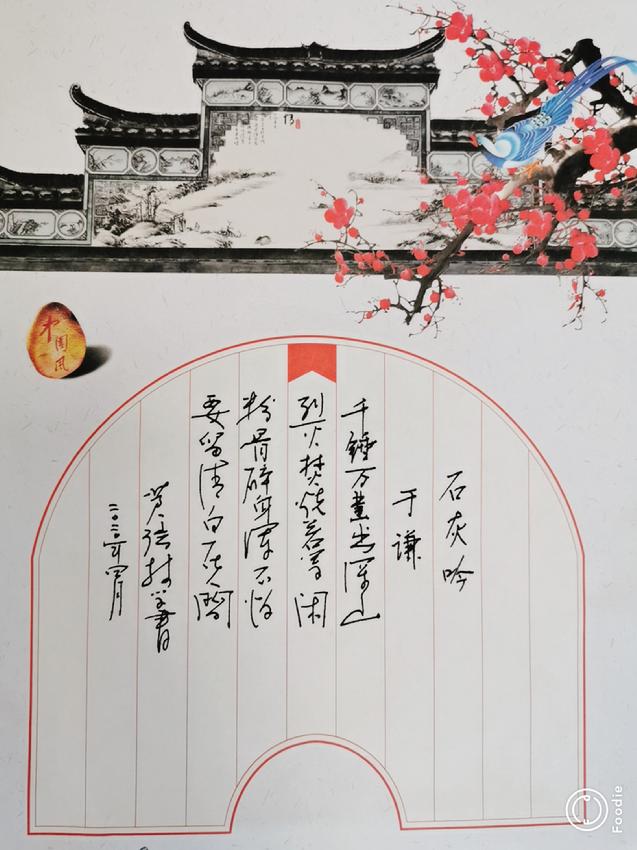 中国风
石灰吟
于谦
千锤万凿出深山
烈火焚烧若等闲
粉骨碎身浑不怕
要留清白在人间
書
二〇二〇年四月
Foodie